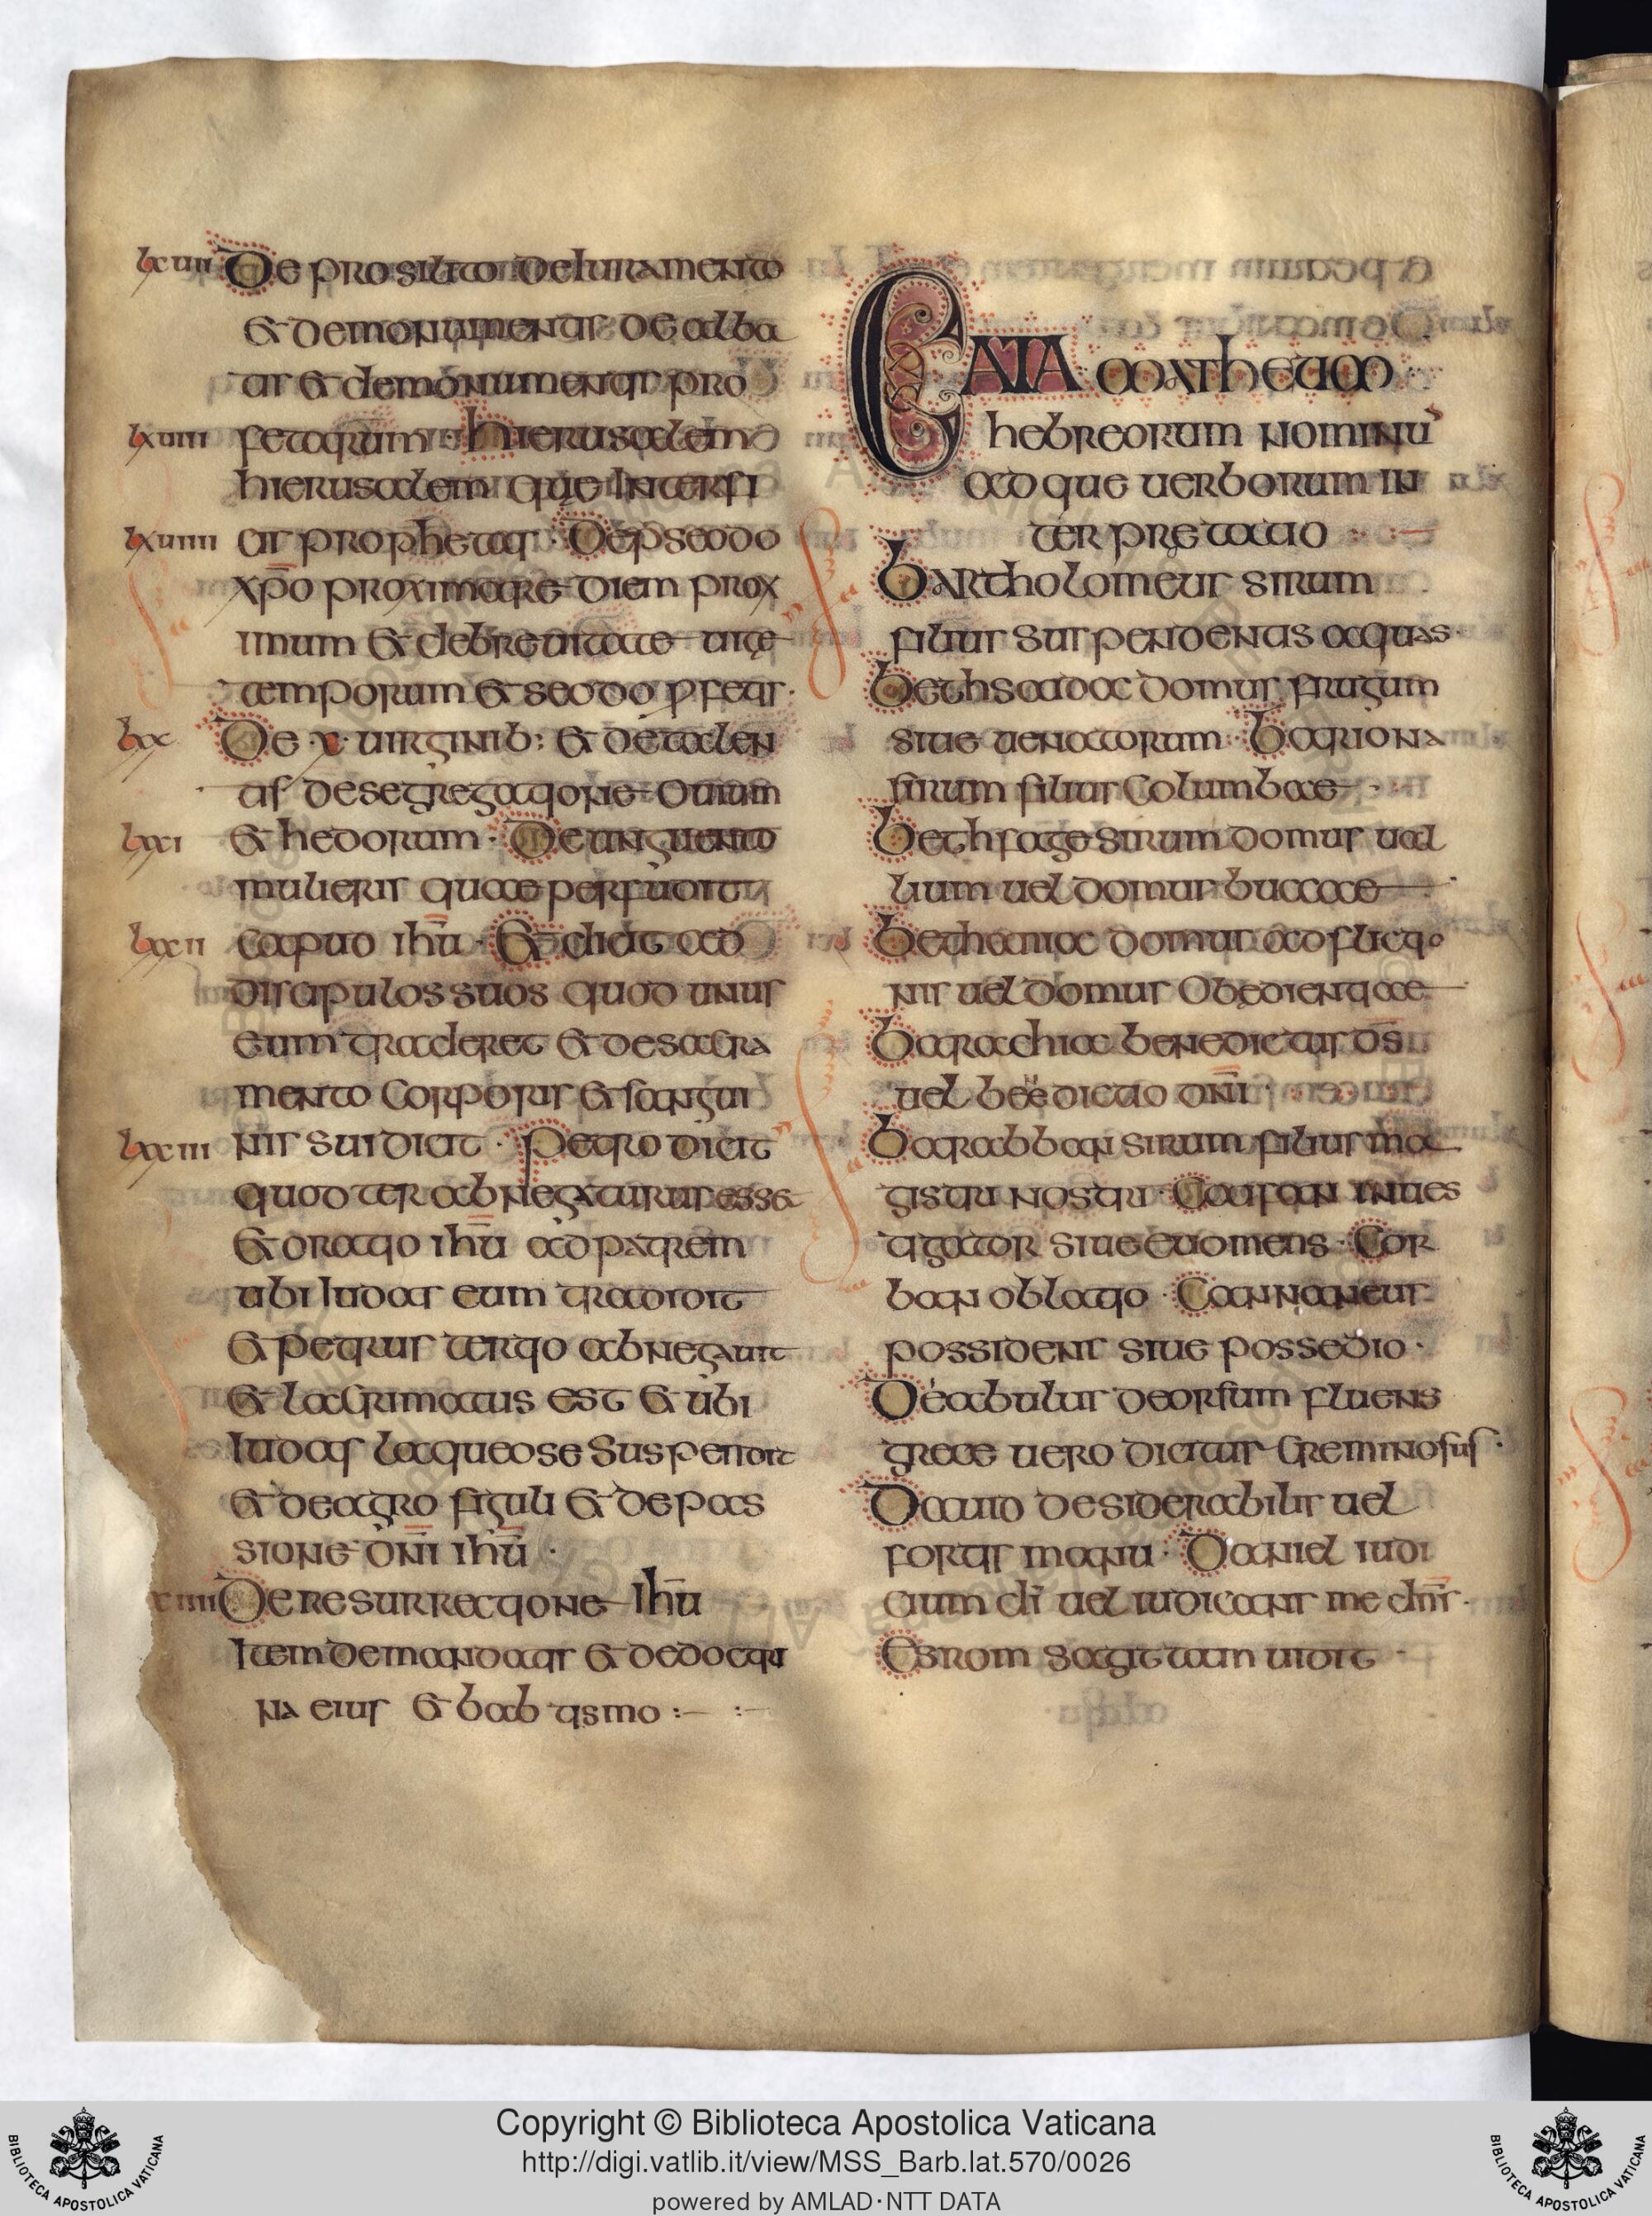 lxvii De prosilito de iuramento
& de monumentis de alba
tis & de monumentis pro
lxviii fetarum · hierusalem
hierusalem quę interfi
lxviiii cis prophetas · De pseodo
xp̄o proximare diem prox
imum & de breuitate uitę
temporum & seodo ꝓfetis ·
lxx De · x · uirginib: & de talen
tis de segregatione ouium
lxxi & hedorum · De unguento
mulieris quae perfudit
lxxii caput ihū · & dicit ad
discipulos suos quod unus
eum traderet & de sacra
mento corporis & sangui
lxxiii nis sui dicit · Petro dicit
quod ter abnegaturus esse
& oratio ihū ad patrem
ubi iudas eum tradidit
& petrus tertio abnegauit
& lacrimatus est & ubi
iudas laqueo se suspendit
& de agro figuli & de pas
sione dn̄i ihū ·
xiiii De resurrectione ihū
Item de mandatis & de doctri
na eius & babtismo :— :—
CATA MATHEUM
hebreorum nominū
ad que uerborum in
ter prętatio
Bartholomeus sirum
filius suspendentis aquas ·
Bethsada domus frugum
siue uenatorum · Bariona
sirum filius columbae
Bethfage sirum domus ual
lium uel domus buccae
Bethania domus adflictio
nis uel domus obędientiae
Barachia benedictus d̄s
uel beedictio dn̄i ·
Barabban sirum filius ma
gistri nostri · Caifan inues
tigator siue euomens · Cor
ban oblatio · Cannaneus
possidens siue possedio ·
Deabulus deorsum fluens
grece uero dicitur creminosus ·
Dauid desiderabilis uel
fortis manu · Daniel iudi
cium dī uel iudicans me dn̄s ·
Esrom sagittam uidit ·
Copyright © Biblioteca Apostolica Vaticana
http://digi.vatlib.it/view/MSS_Barb.lat.570/0026
powered by AMLAD·NTT DATA
BIBLIOTECA APOSTOLICA VATICANA
BIBLIOTECA APOSTOLICA VATICANA